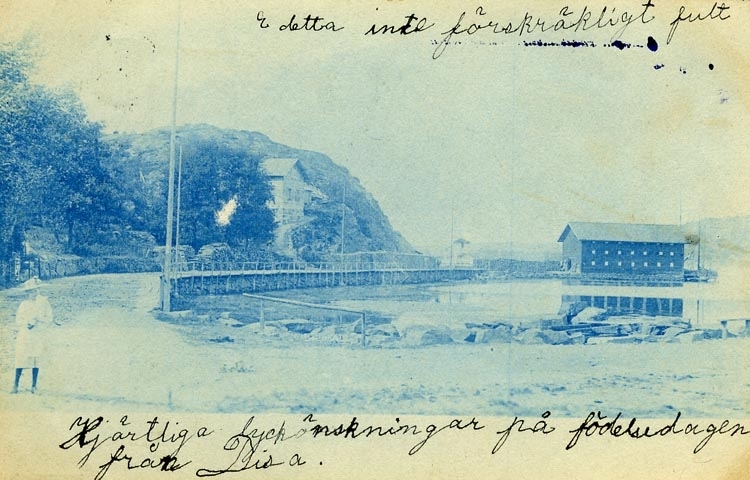 E detta inte förskräkligt fult
Hjärtliga lyckönskningar på födelsedagen
från Lisa.